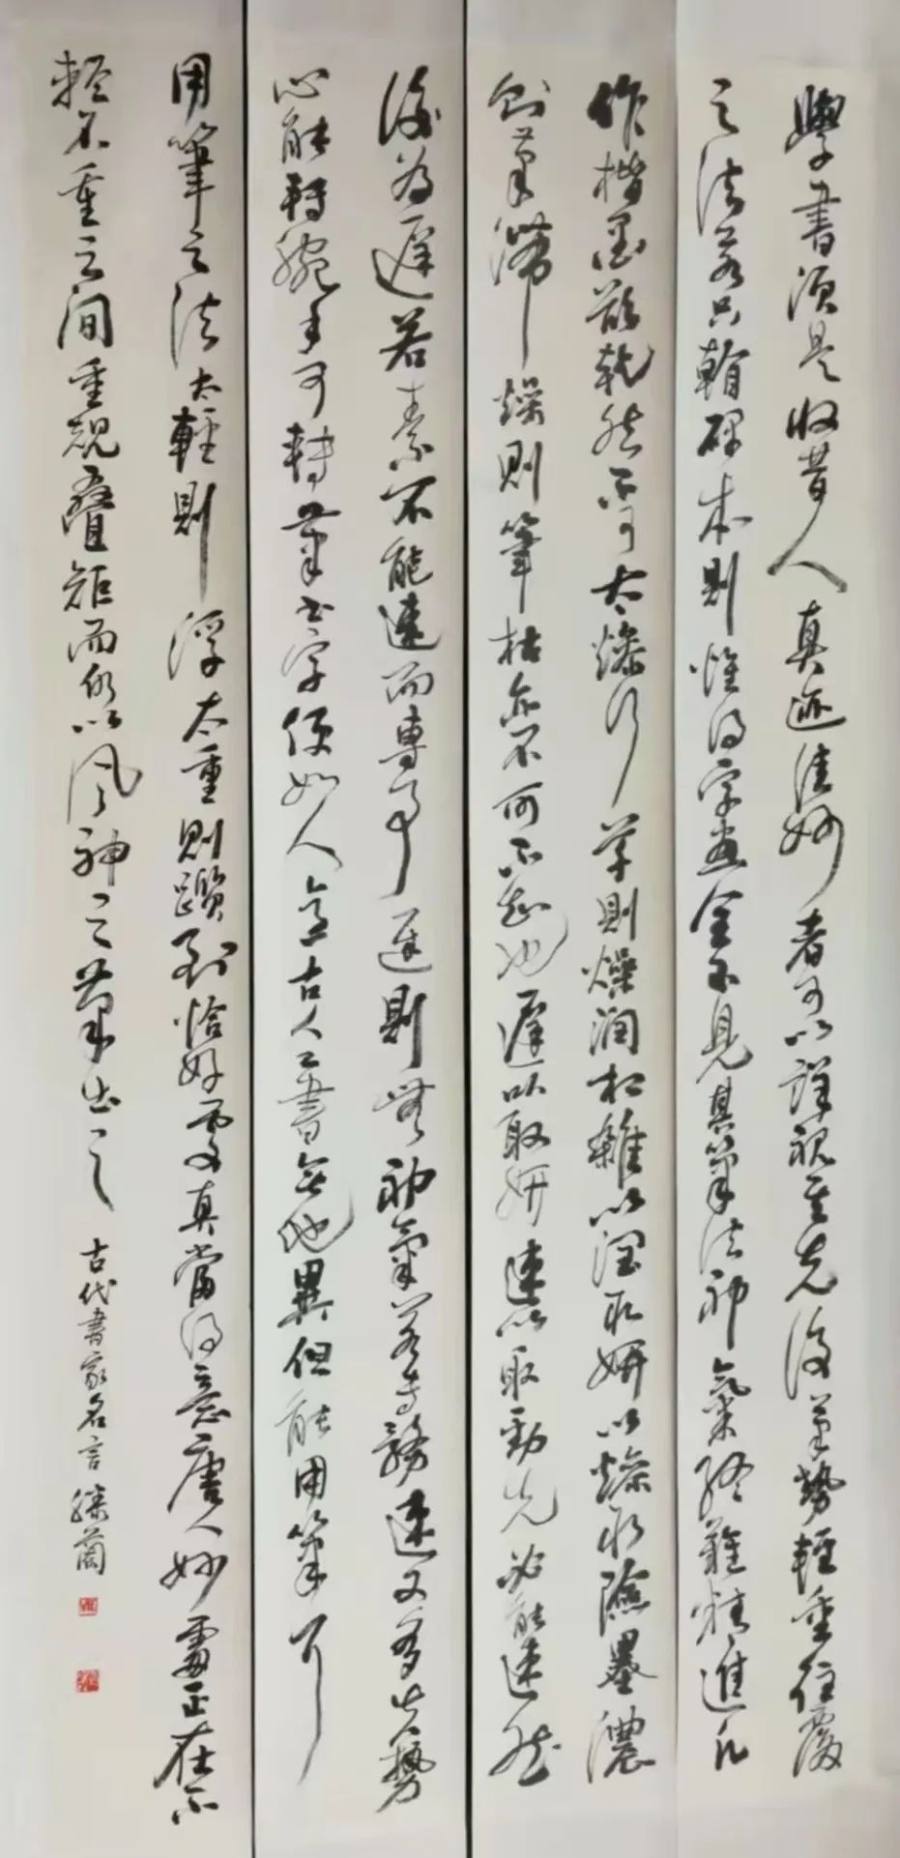 學書須是收昔人真迹佳妙者可以詳視其先後筆勢輕重往復
之法若只看碑本則惟得字畫全不見其筆法神氣終難精進凡
作楷墨欲乾然不可太燥行草則燥潤相雜以潤取妍以燥取險墨濃
則筆滯燥則筆枯亦不可不知也遲以取妍速以取勁先必能速然
後為遲若素不能速而專事遲則無神氣若專務速又多失勢
心能轉腕手可轉筆書字便如人意古人工書無他異但能用筆耳
用筆之法太輕則浮太重則躓到恰好處真當得意唐人妙處正在不
輕不重之間重規疊矩而仍以風神之筆出之
古代書家名言